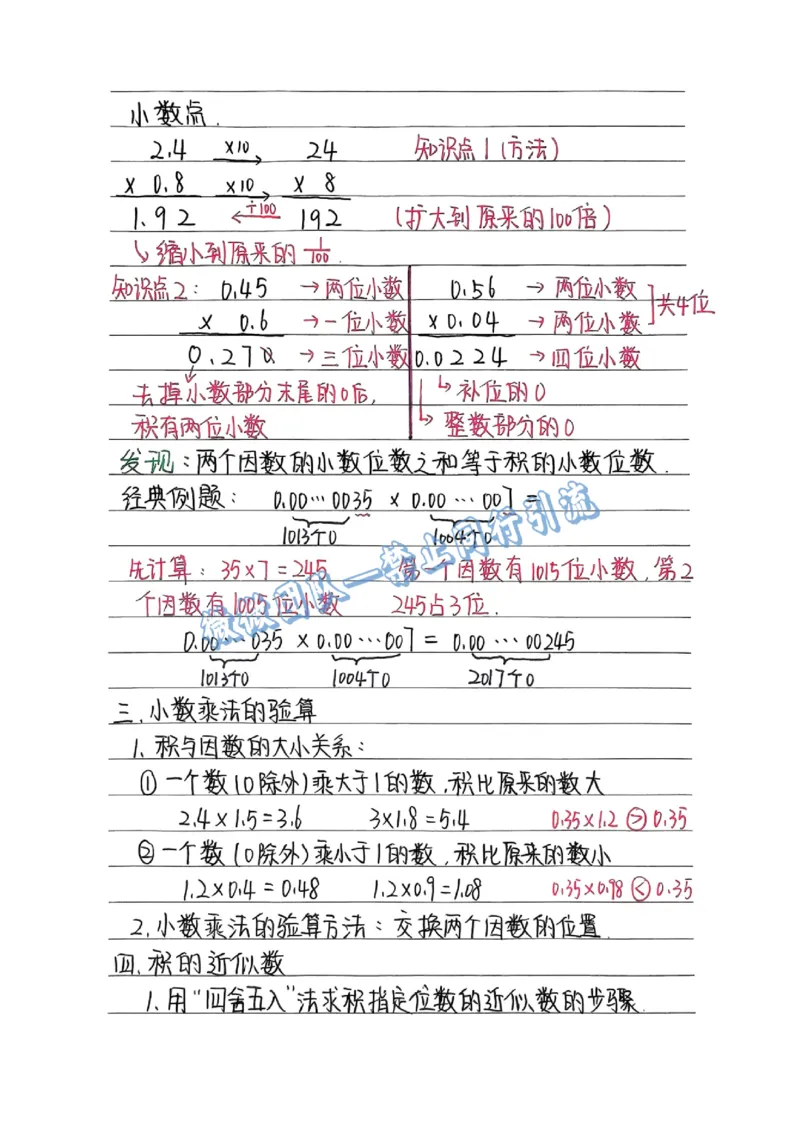 小数点.
2.4 ×10→ 24 知识点1(方法)
× 0.8 ×10→ × 8
1.92 ←÷100 192 (扩大到原来的100倍)
↳缩小到原来的1/100.
知识点2: 0.45 →两位小数 0.56 →两位小数
× 0.6 →一位小数 ×0.04 →两位小数 共4位
0.270 →三位小数 0.0224 →四位小数
去掉小数部分末尾的0后, ↳补位的0
积有两位小数 ↳整数部分的0
发现:两个因数的小数位数之和等于积的小数位数.
经典例题: 0.00…0035 × 0.00…007 =
1013个0 1004个0
先计算:35×7=245 第一个因数有1015位小数,第2
个因数有1005位小数 245占3位.
0.00…035 ×0.00…007 = 0.00…00245
1013个0 1004个0 2017个0
三.小数乘法的验算
1.积与因数的大小关系:
①一个数(0除外)乘大于1的数,积比原来的数大
2.4×1.5=3.6 3×1.8=5.4 0.35×1.2>0.35
②一个数(0除外)乘小于1的数,积比原来的数小
1.2×0.4=0.48 1.2×0.9=1.08 0.35×0.98<0.35
2.小数乘法的验算方法:交换两个因数的位置.
四.积的近似数
1.用“四舍五入”法求积指定位数的近似数的步骤.
薇薇团队—禁止同行引流